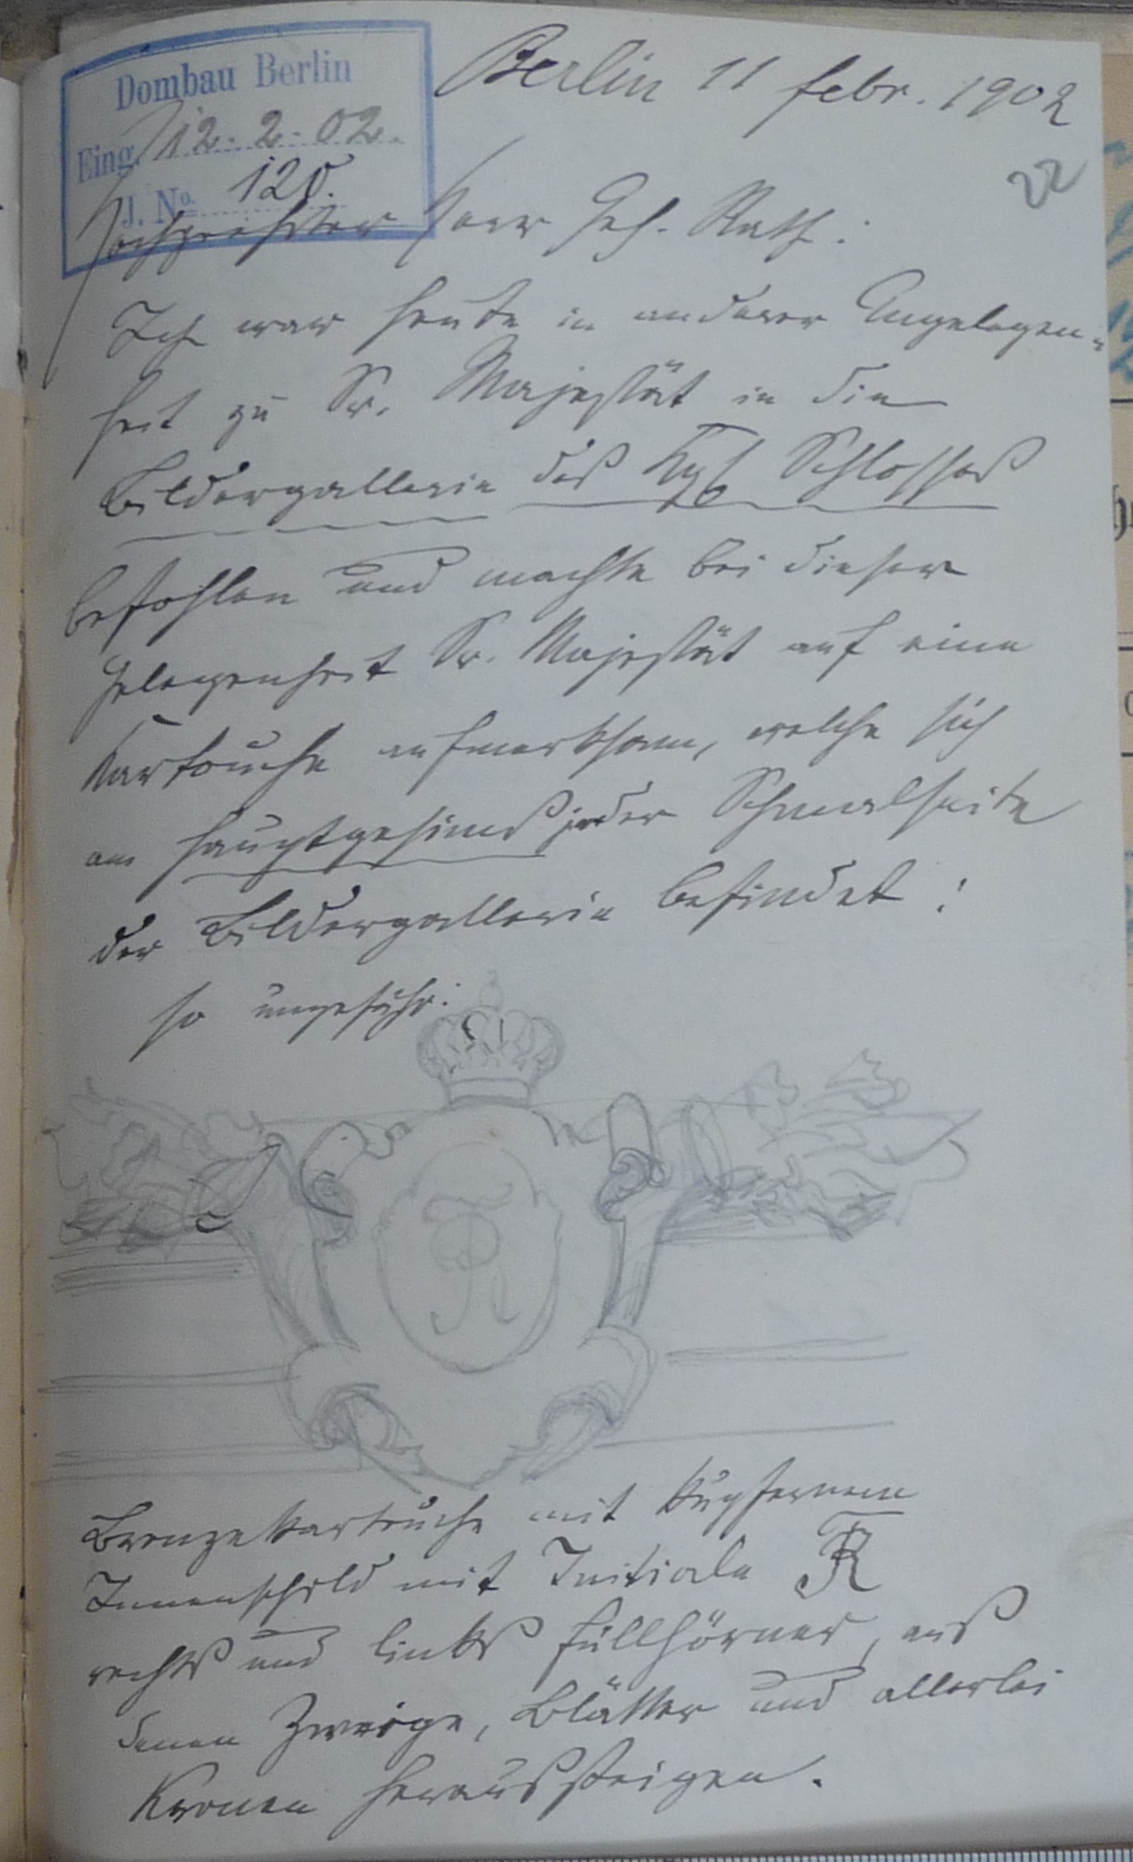 Dombau Berlin
Eing. 12.2.02.
J. No. 120.
Berlin 11 febr. 1902
22
Hochgeehrter Herr Geh. Rath:
Ich war heute in anderer Angelegen-
heit zu Sr. Majestät in die
Bildergallerie des Kgl Schlosses
befohlen und machte bei dieser
Gelegenheit Sr. Majestät auf eine
Kartouche aufmerksam, welche sich
am Hauptgesims jeder Schmalseite
der Bildergallerie befindet:
so ungefähr:
FR
Bronzekartouche mit kupfernem
Innenschild mit Initiale FR
rechts und links Füllhörner, aus
denen Zweige, Blätter und allerlei
Kronen heraussteigen.